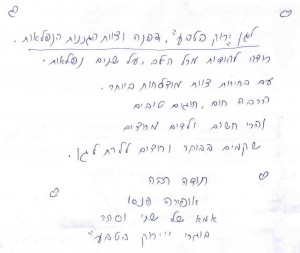 לגן "ירוק בטבע", דפנה וצוות הגננות הנפלאות.
רוצה להודות מכל הלב, על שנים נפלאות.
עם בחירות צוות מוצלחות ביותר.
הרבה חום, חוגים טובים
והכי חשוב ילדים מרוצים
שקמים בבוקר ורוצים ללכת לגן.
תודה רבה
אופירה
אמא של שני וסהר
בוגרי "ירוק בטבע"